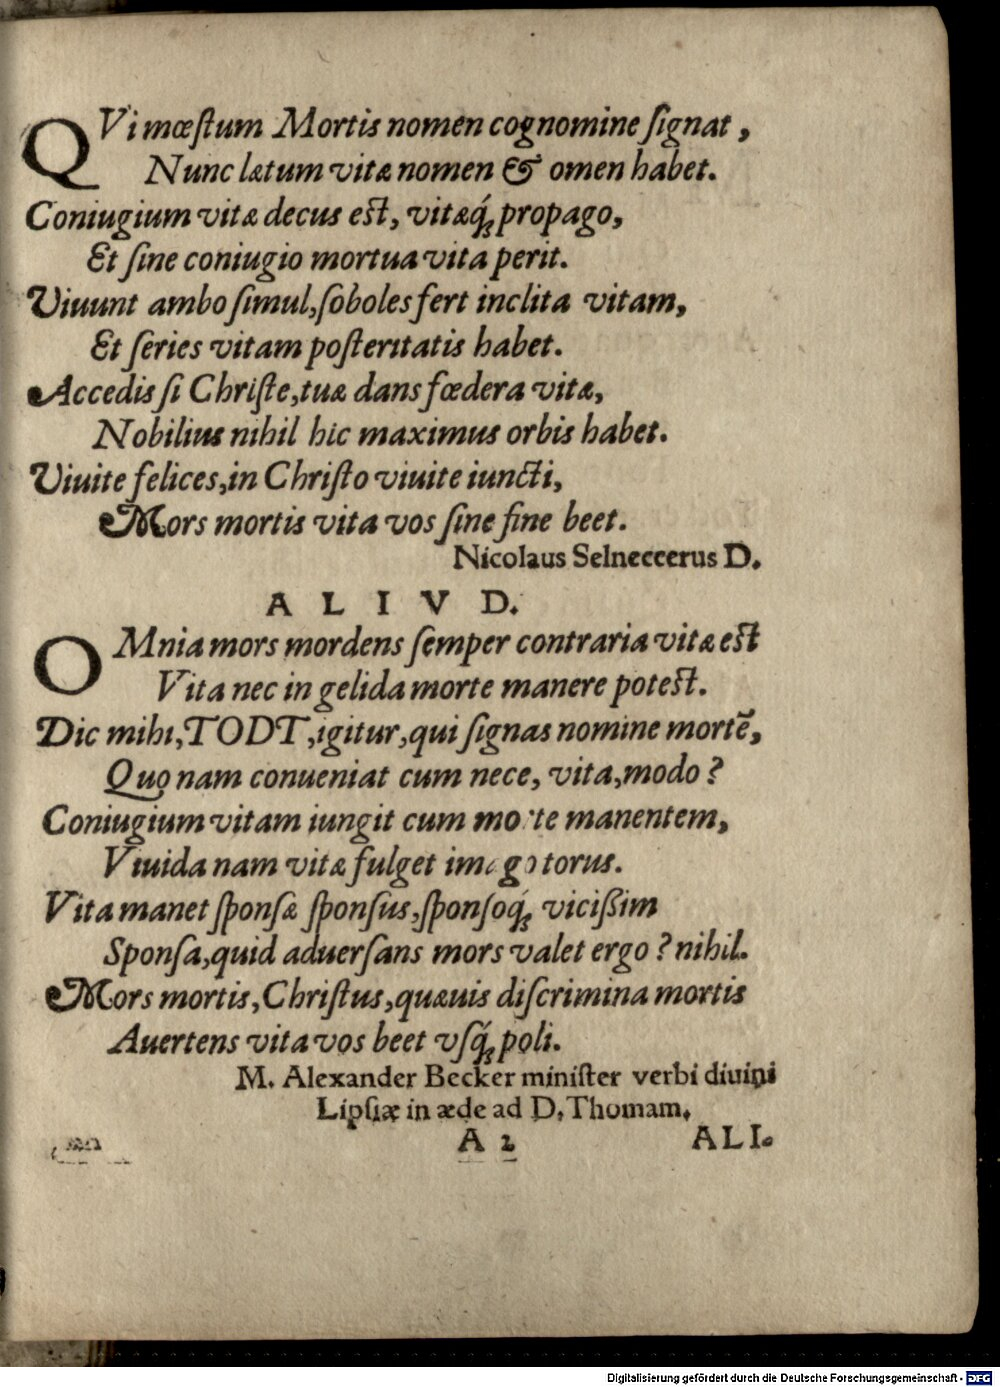 QVi mœſtum Mortis nomen cognomine ſignat,
Nunc lætum vitæ nomen & omen habet.
Coniugium vitæ decus eſt, vitæq́; propago,
Et ſine coniugio mortua vita perit.
Viuunt ambo ſimul, ſoboles fert inclita vitam,
Et ſeries vitam poſteritatis habet.
Accedis ſi Chriſte, tuæ dans fœdera vitæ,
Nobilius nihil hic maximus orbis habet.
Viuite felices, in Chriſto viuite iuncti,
Mors mortis vita vos ſine fine beet.
Nicolaus Selneccerus D.
ALIVD.
OMnia mors mordens ſemper contraria vitæ eſt
Vita nec in gelida morte manere poteſt.
Dic mihi, TODT, igitur, qui ſignas nomine mortẽ,
Quo nam conueniat cum nece, vita, modo?
Coniugium vitam iungit cum morte manentem,
Viuida nam vitæ fulget imago torus.
Vita manet ſponſæ ſponſus, ſponſoq́; vicißim
Sponſa, quid aduerſans mors valet ergo? nihil.
Mors mortis, Chriſtus, quæuis diſcrimina mortis
Auertens vita vos beet vſq́; poli.
M. Alexander Becker miniſter verbi diuini
Lipſiæ in æde ad D. Thomam.
A 2 ALI.
Digitalisierung gefördert durch die Deutsche Forschungsgemeinschaft - DFG